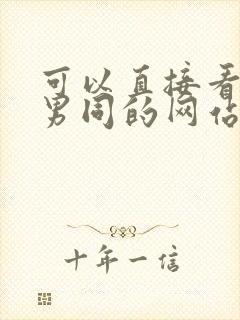 可以直接看
男同的网站
十年一信